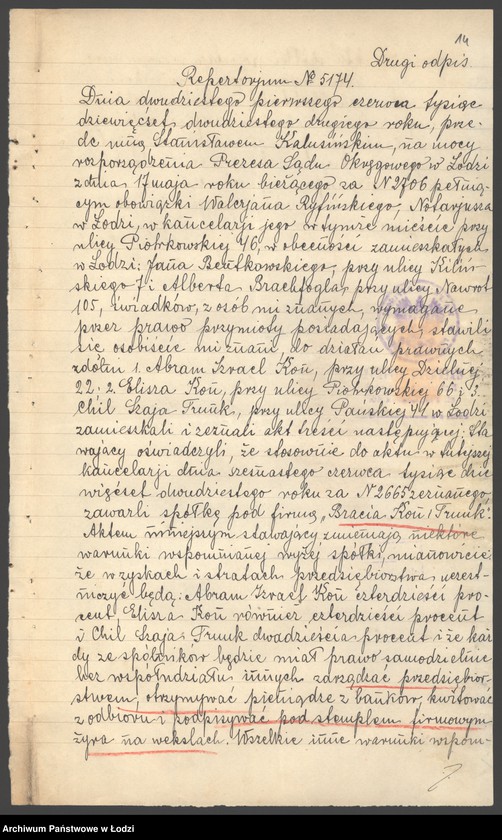 14
Drugi odpis
Repertorjum № 5174.
Dnia dwudziestego pierwszego czerwca tysiąc
dziewięćset dwudziestego drugiego roku, prze-
de mną Stanisławem Kałusińskim, na mocy
rozporządzenia Prezesa Sądu Okręgowego w Łodzi
z dnia 17 maja roku bieżącego za N 2706 pełnią-
cym obowiązki Walerjana Ryfińskiego, Notarjusza
w Łodzi, w kancelarji jego w tymże mieście przy
ulicy Piotrkowskiej 46, w obecności zamieszkałych
w Łodzi: Jana Bentkowskiego, przy ulicy Kiliń-
skiego 7 i Alberta Brachfogla, przy ulicy Nawrot
105, świadków, z osób mi znanych, wymagane
przez prawo przymioty posiadających, stawili
się osobiście mi znani, do działań prawnych
zdolni 1. Abram Izrael Kon, przy ulicy Dzielnej
22; 2. Elisza Kon, przy ulicy Piotrkowskiej 66 i 3.
Chil Szaja Trunk, przy ulicy Pańskiej 41 w Łodzi
zamieszkali i zeznali akt treści następującej: Sta-
wający oświadczyli, że stosownie do aktu w tutejszej
kancelarji dnia szesnastego czerwca tysiąc dzie-
więćset dwudziestego roku za N 2665 zeznanego,
zawarli spółkę pod firmą „Bracia Kon i Trunk".
Aktem niniejszym stawający zmieniają niektóre
warunki wspomnianej wyżej spółki, mianowicie:
że w zyskach i stratach przedsiębiorstwa uczest-
niczyć będą: Abram Izrael Kon czterdzieści pro-
cent, Elisza Kon również czterdzieści procent
i Chil Szaja Trunk dwadzieścia procent i że każ-
dy ze spólników będzie miał prawo samodzielnie
bez współudziału innych zarządzać przedsiębior-
stwem, otrzymywać pieniądze z banków, kwitować
z odbioru i podpisywać pod stemplem firmowym
żyra na wekslach. Wszelkie inne warunki wspom-
Archiwum Państwowe w Łodzi